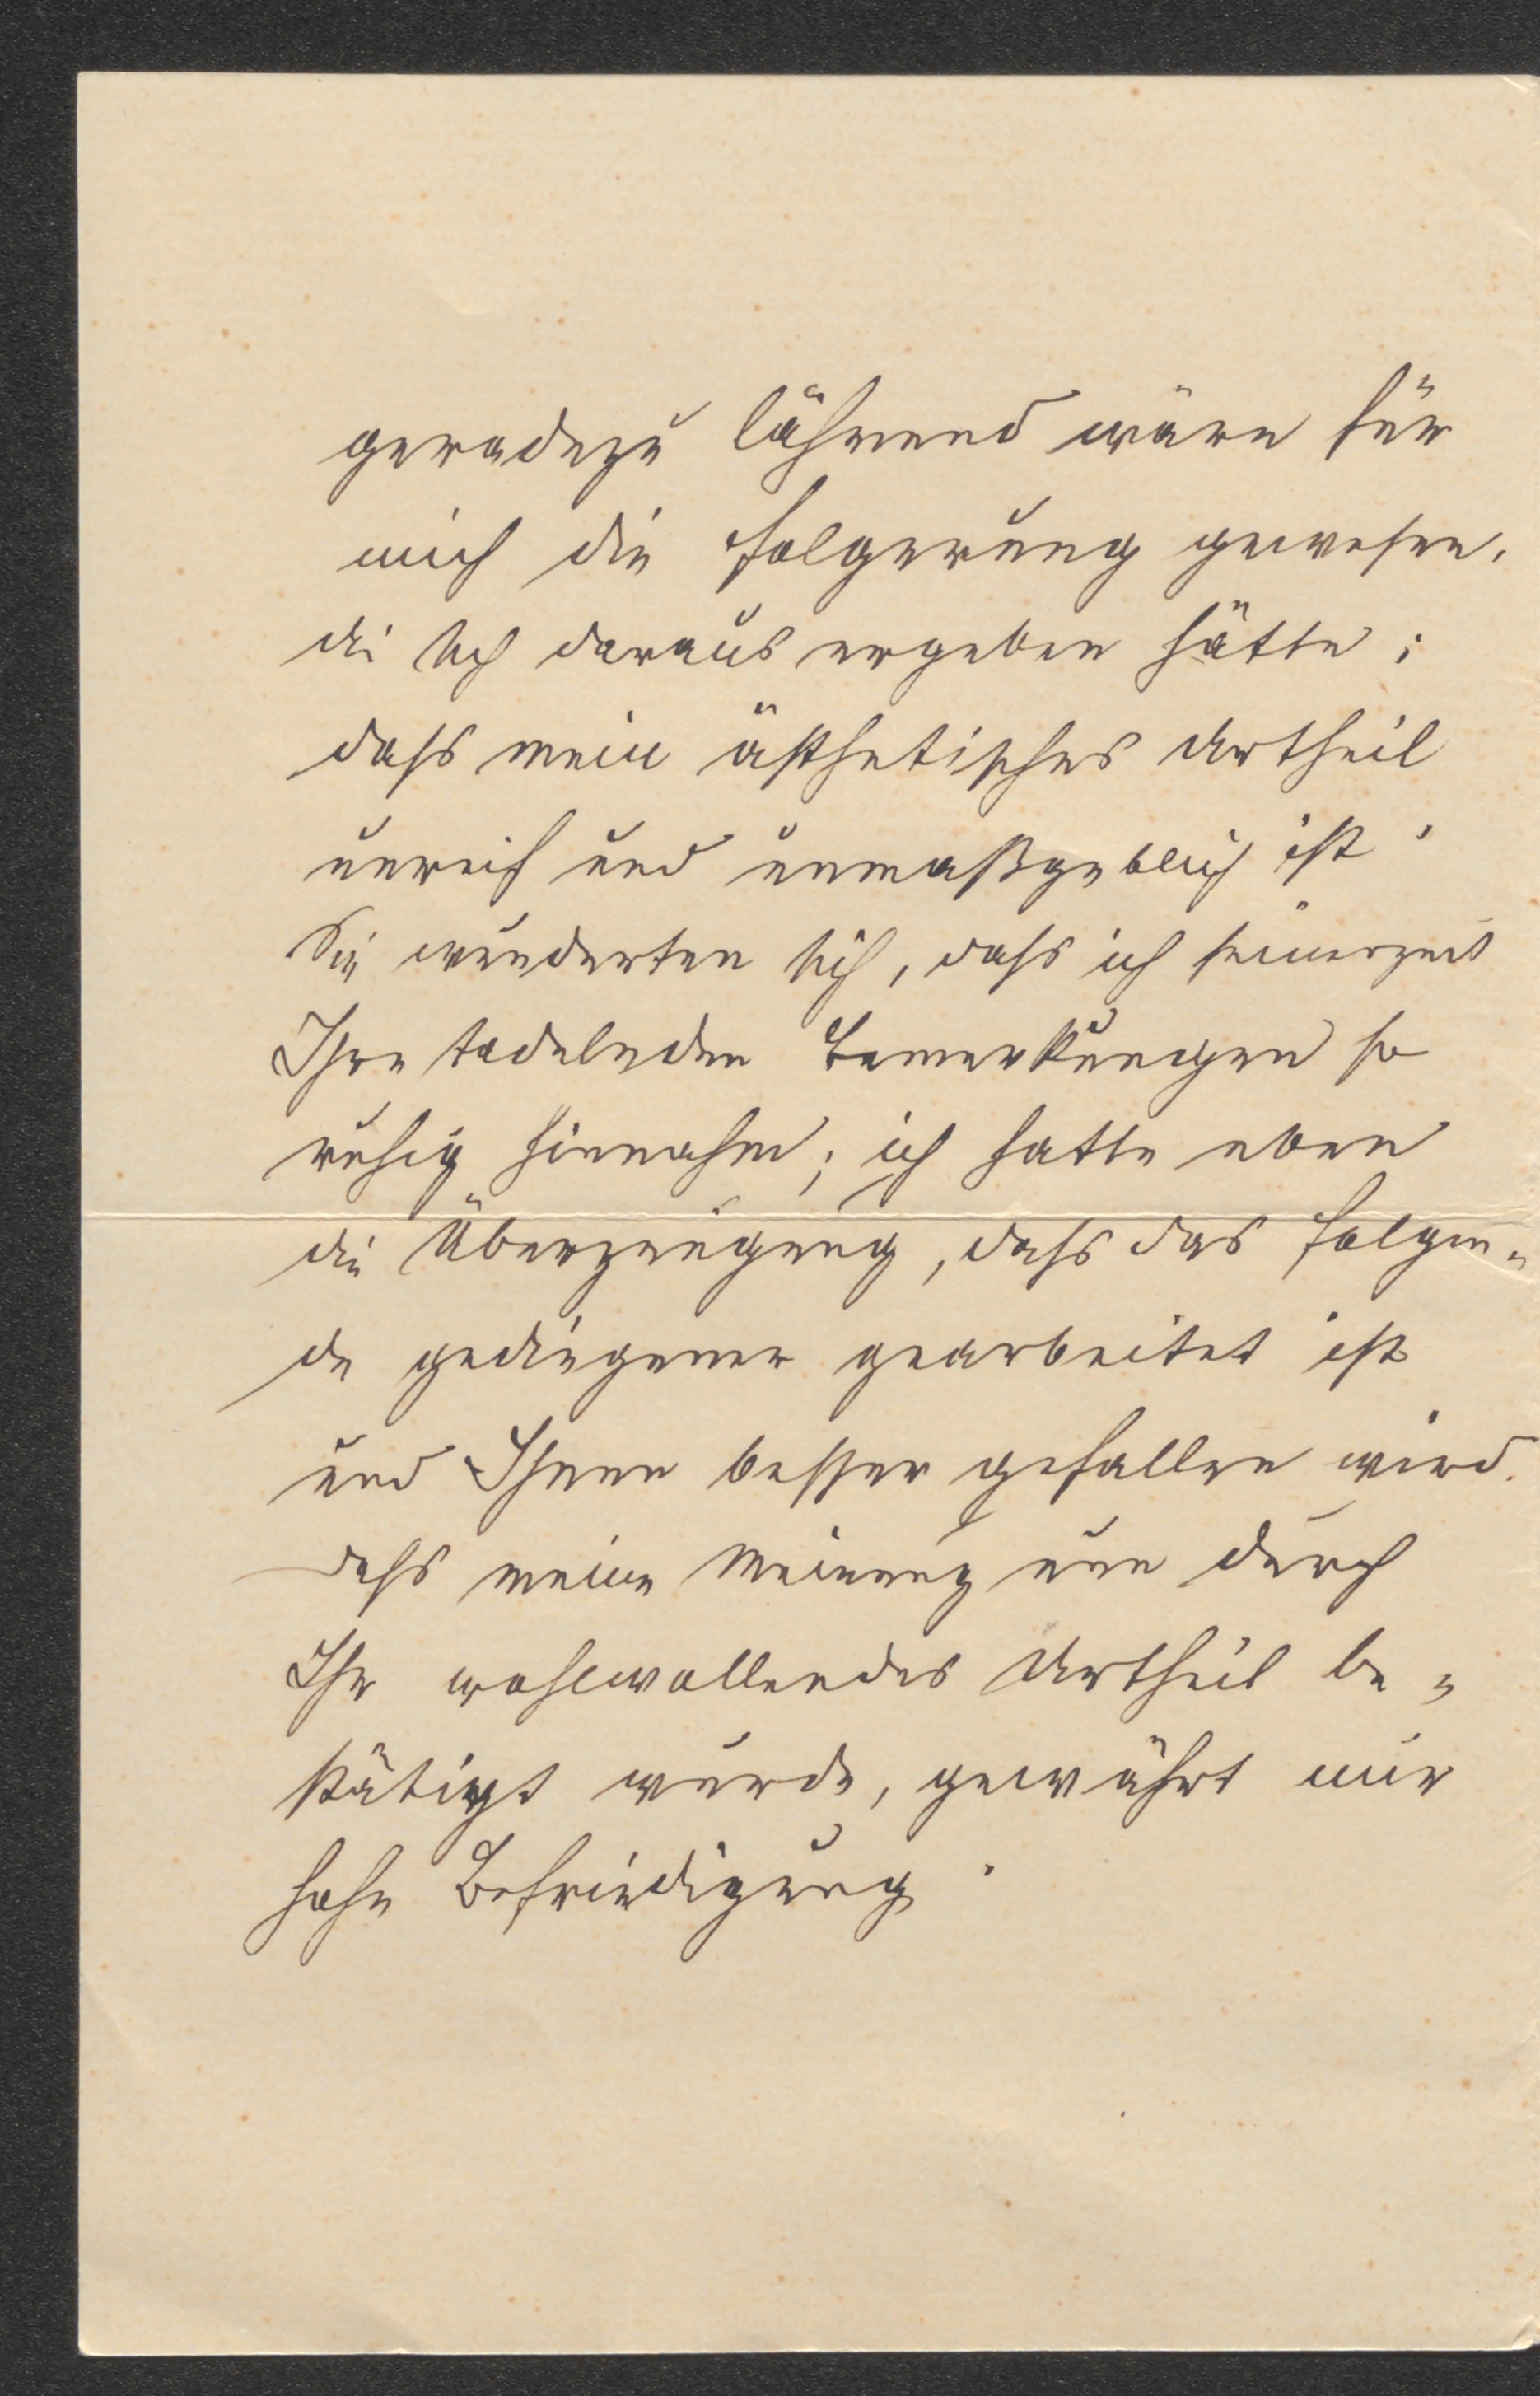 geradezu lähmend wäre für
mich die Folgerung gewesen,
die sich daraus ergeben hätte:
dass mein ästhetisches Urtheil
unreif und unmaßgeblich ist.
Sie wunderten sich, dass ich seinerzeit
Ihre tadelnden Bemerkungen so
ruhig hinnahm; ich hatte eben
die Überzeugung, dass das Folgen-
de gediegener gearbeitet ist
und Ihnen besser gefallen wird.
Dass meine Meinung nun durch
Ihr wohlwollendes Urtheil be-
stätigt wurde, gewährt mir
hohe Befriedigung.